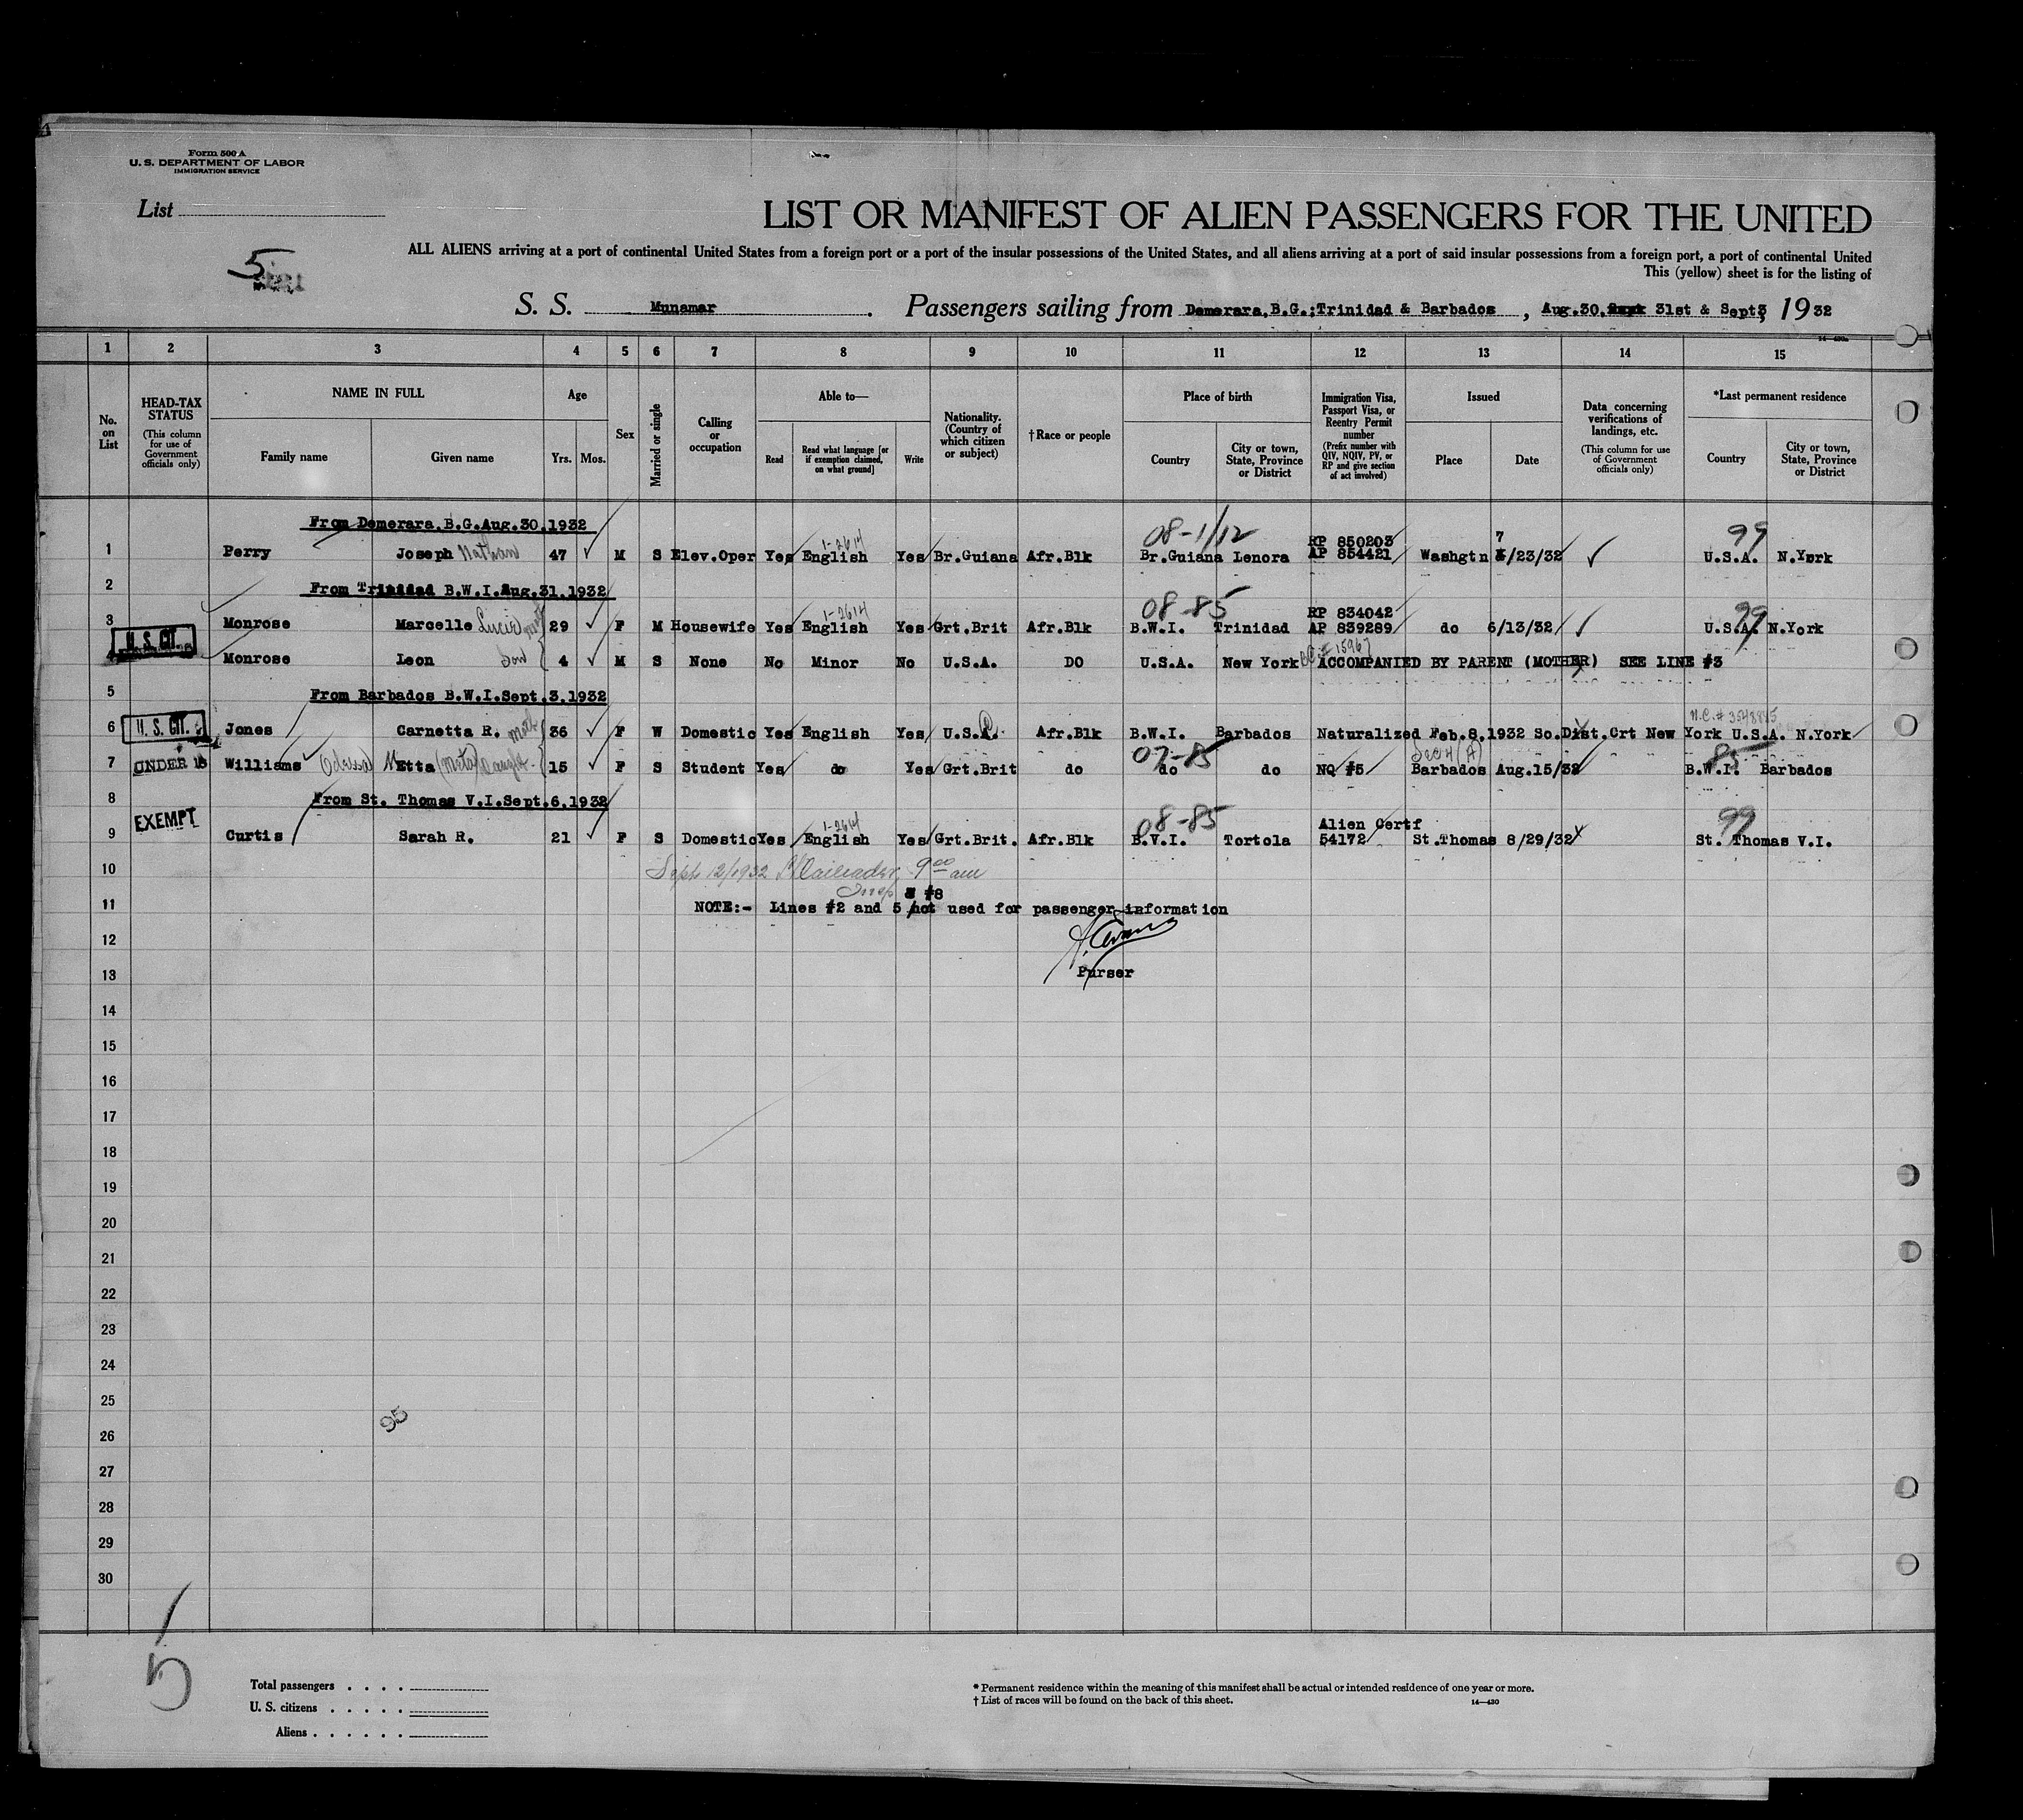 Form 500 A
U. S. DEPARTMENT OF LABOR
IMMIGRATION SERVICE
List
5
LIST OR MANIFEST OF ALIEN PASSENGERS FOR THE UNITED
ALL ALIENS arriving at a port of continental United States from a foreign port or a port of the insular possessions of the United States, and all aliens arriving at a port of said insular possessions from a foreign port, a port of continental United
This (yellow) sheet is for the listing of
S. S. Munamar. Passengers sailing from Demerara, B.G.;Trinidad & Barbados, Aug.30, 31st & Sept3, 1932
14—430a
1 2 3 4 5 6 7 8 9 10 11 12 13 14 15
No. on List
HEAD-TAX STATUS
(This column for use of Government officials only)
NAME IN FULL
Family name
Given name
Age
Yrs.
Mos.
Sex
Married or single
Calling or occupation
Able to—
Read
Read what language [or if exemption claimed, on what ground]
Write
Nationality. (Country of which citizen or subject)
†Race or people
Place of birth
Country
City or town, State, Province or District
Immigration Visa, Passport Visa, or Reentry Permit number
(Prefix number with QIV, NQIV, PV, or RP and give section of act involved)
Issued
Place
Date
Data concerning verifications of landings, etc.
(This column for use of Government officials only)
*Last permanent residence
Country
City or town, State, Province or District
From Demerara, B.G.Aug.30,1932
1-2614 08-1/12 RP 850203 7 99
1 Perry Joseph Nathan 47 M S Elev.Oper Yes English Yes Br.Guiana Afr.Blk Br.Guiana Lenora AP 854421 Washgtn /23/32 U.S.A. N.York
2 From Trinidad B.W.I.Aug.31,1932
1-2614 08-85 RP 834042 99
3 Monrose Marcelle Lucie Moth 29 F M Housewife Yes English Yes Grt.Brit Afr.Blk B.W.I. Trinidad AP 839289 do 6/13/32 U.S.A. N.York
U. S. CIT. B.C.# 15967
4 Monrose Leon Son 4 M S None No Minor No U.S.A. DO U.S.A. New York ACCOMPANIED BY PARENT (MOTHER) SEE LINE #3
5 From Barbados B.W.I.Sept.3,1932
N.C.# 3548885
6 U. S. CIT. Jones Carnetta R. Moth 36 F W Domestic Yes English Yes U.S.A. Afr.Blk B.W.I. Barbados Naturalized Feb.8,1932 So.Dist.Crt New York U.S.A. N.York
07-85 Sec 4 (A) 85
7 UNDER 16 Williams Odessa Metta (Meta) Daught. 15 F S Student Yes do Yes Grt.Brit do do do NQ #5 Barbados Aug.15/32 B.W.I. Barbados
8 From St. Thomas V.I.Sept.6,1932
EXEMPT 1-2614 08-85 Alien Certf 99
9 Curtis Sarah R. 21 F S Domestic Yes English Yes Grt.Brit. Afr.Blk B.V.I. Tortola 54172 St.Thomas 8/29/32 St. Thomas V.I.
10 Sept 12/1932 9 00 am
Insp #8
11 NOTE:- Lines #2 and 5 not used for passenger information
12
13 Purser
14
15
16
17
18
19
20
21
22
23
24
25
95
26
27
28
29
30
5
Total passengers
U. S. citizens
Aliens
* Permanent residence within the meaning of this manifest shall be actual or intended residence of one year or more.
† List of races will be found on the back of this sheet.
14—430